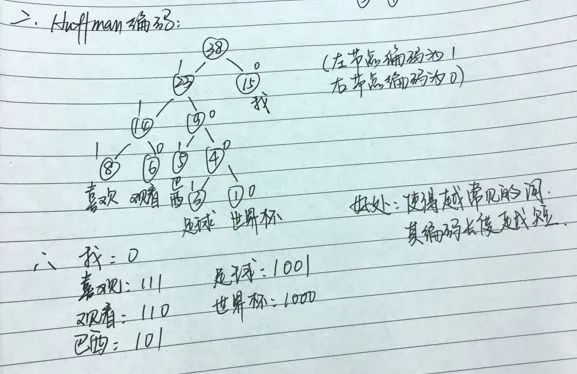 二、Huffman编码:
38
1 0
23 15
我
(左节点编码为1
右节点编码为0)
1 0
14 9
1 0 1 0
8 6 5 4
喜欢 观看 巴西
1 0
3 1
足球 世界杯
好处:使得越常见的词,
其编码长度越短.
∴ 我:0
喜欢:111 足球:1001
观看:110 世界杯:1000
巴西:101